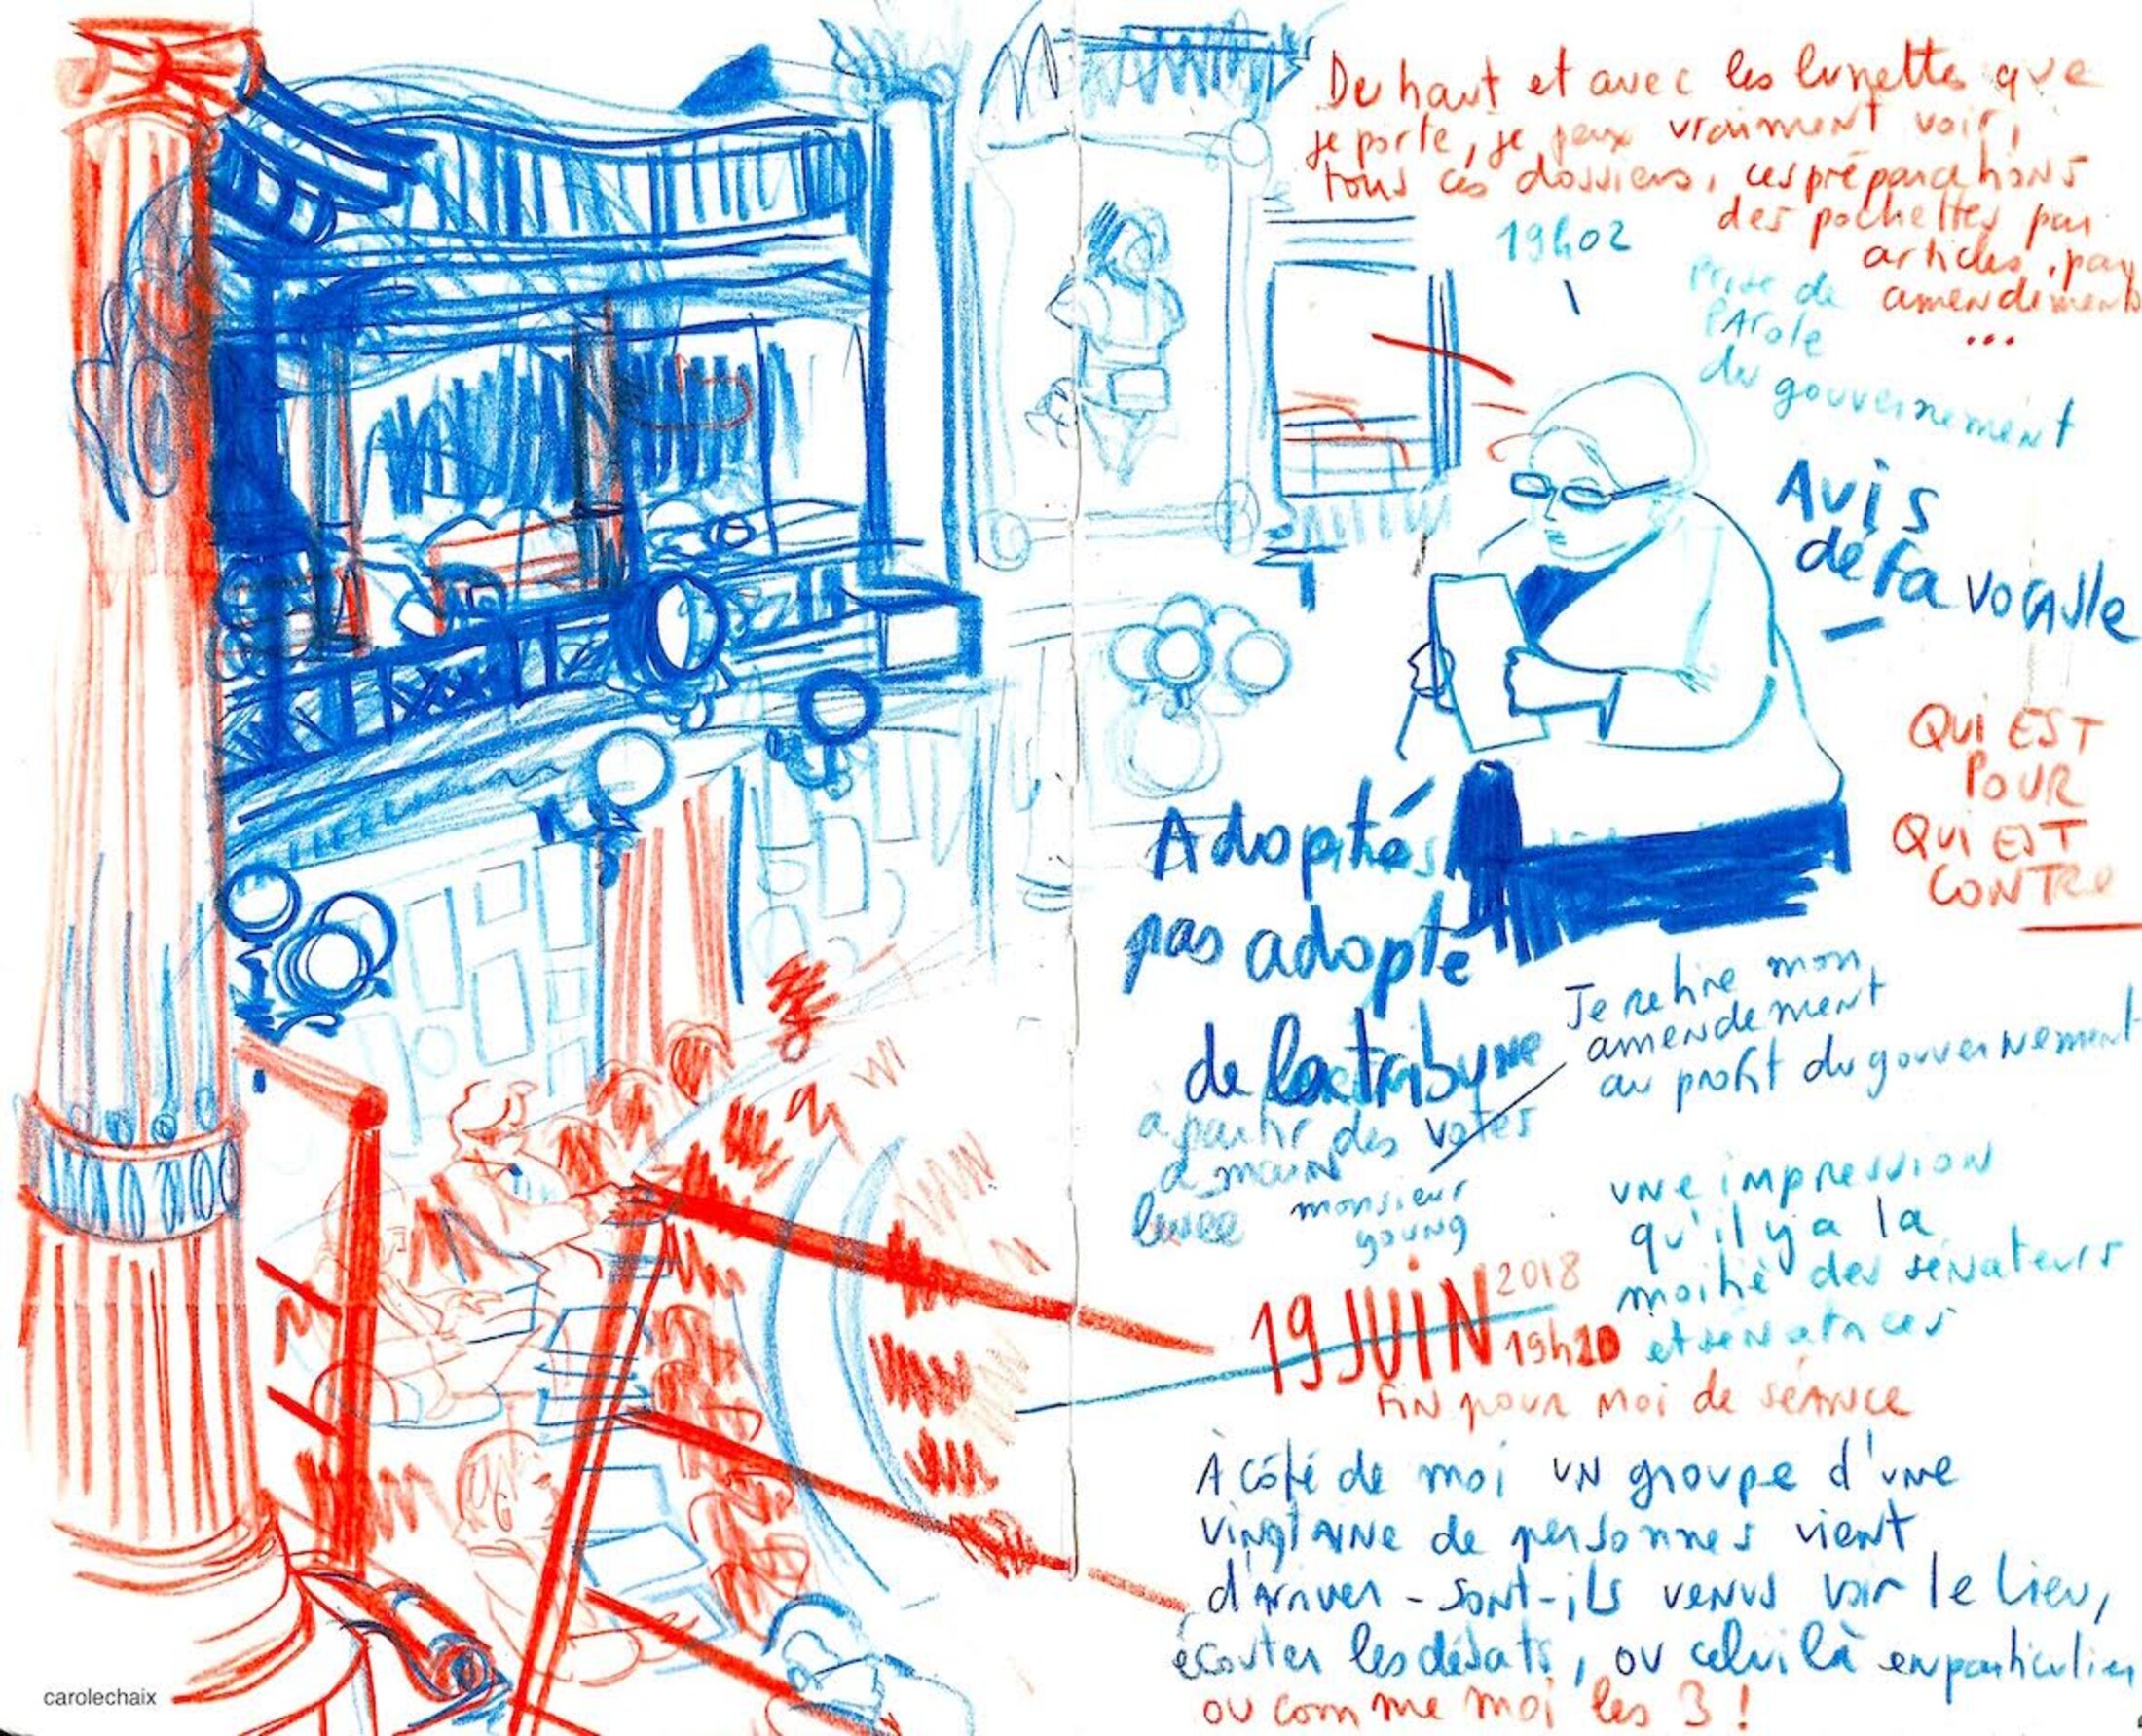 De haut et avec les lunettes que
je porte, je peux vraiment voir,
tous ces dossiers, ces préparations
des pochettes par
articles, par
amendements
...
19h02
Prise de
PArole
du gouvernement
Avis
défavorable
QUi EST
POUR
QUi EST
CONTRE
Adoptés
pas adopté
de la tribune
à partir des votes
à main
levée
monsieur
young
Je retire mon
amendement
au profit du gouvernement
UNe impression
qu'il y a la
moitié des sénateurs
et sénatrices
19 JUiN 2018
19h20
FiN pour moi de séance
À côté de moi UN groupe d'une
vingtaiNe de personnes vient
d'arriver - sont-ils venus voir le lieu,
écouter les débats, ou celui là en particulier
ou comme moi les 3 !
carolechaix